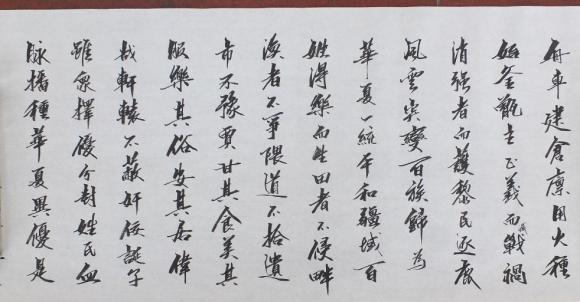 舟車建倉廩用火種
始釜甑主正義而戰禍
清强者而護黎民逐鹿
風雲突變百族歸為
華夏一統平和疆域百
姓得樂而生田者不侵畔
漁者不爭隈道不拾遺
市不豫賈甘其食美其
服樂其俗安其居偉
哉軒轅不蔽奸佞誕子
雖衆擇優分封姓氏血
脉播種華夏興優是